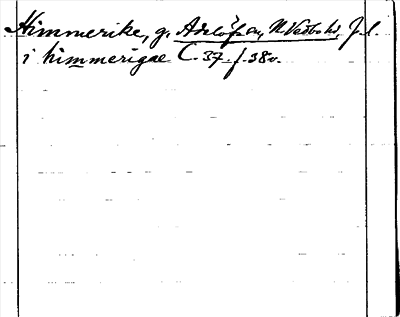 Himmerike, g. Adelöfsn, N. Vedbo hd, J. l.
i himmerigae C. 37. f. 38v.